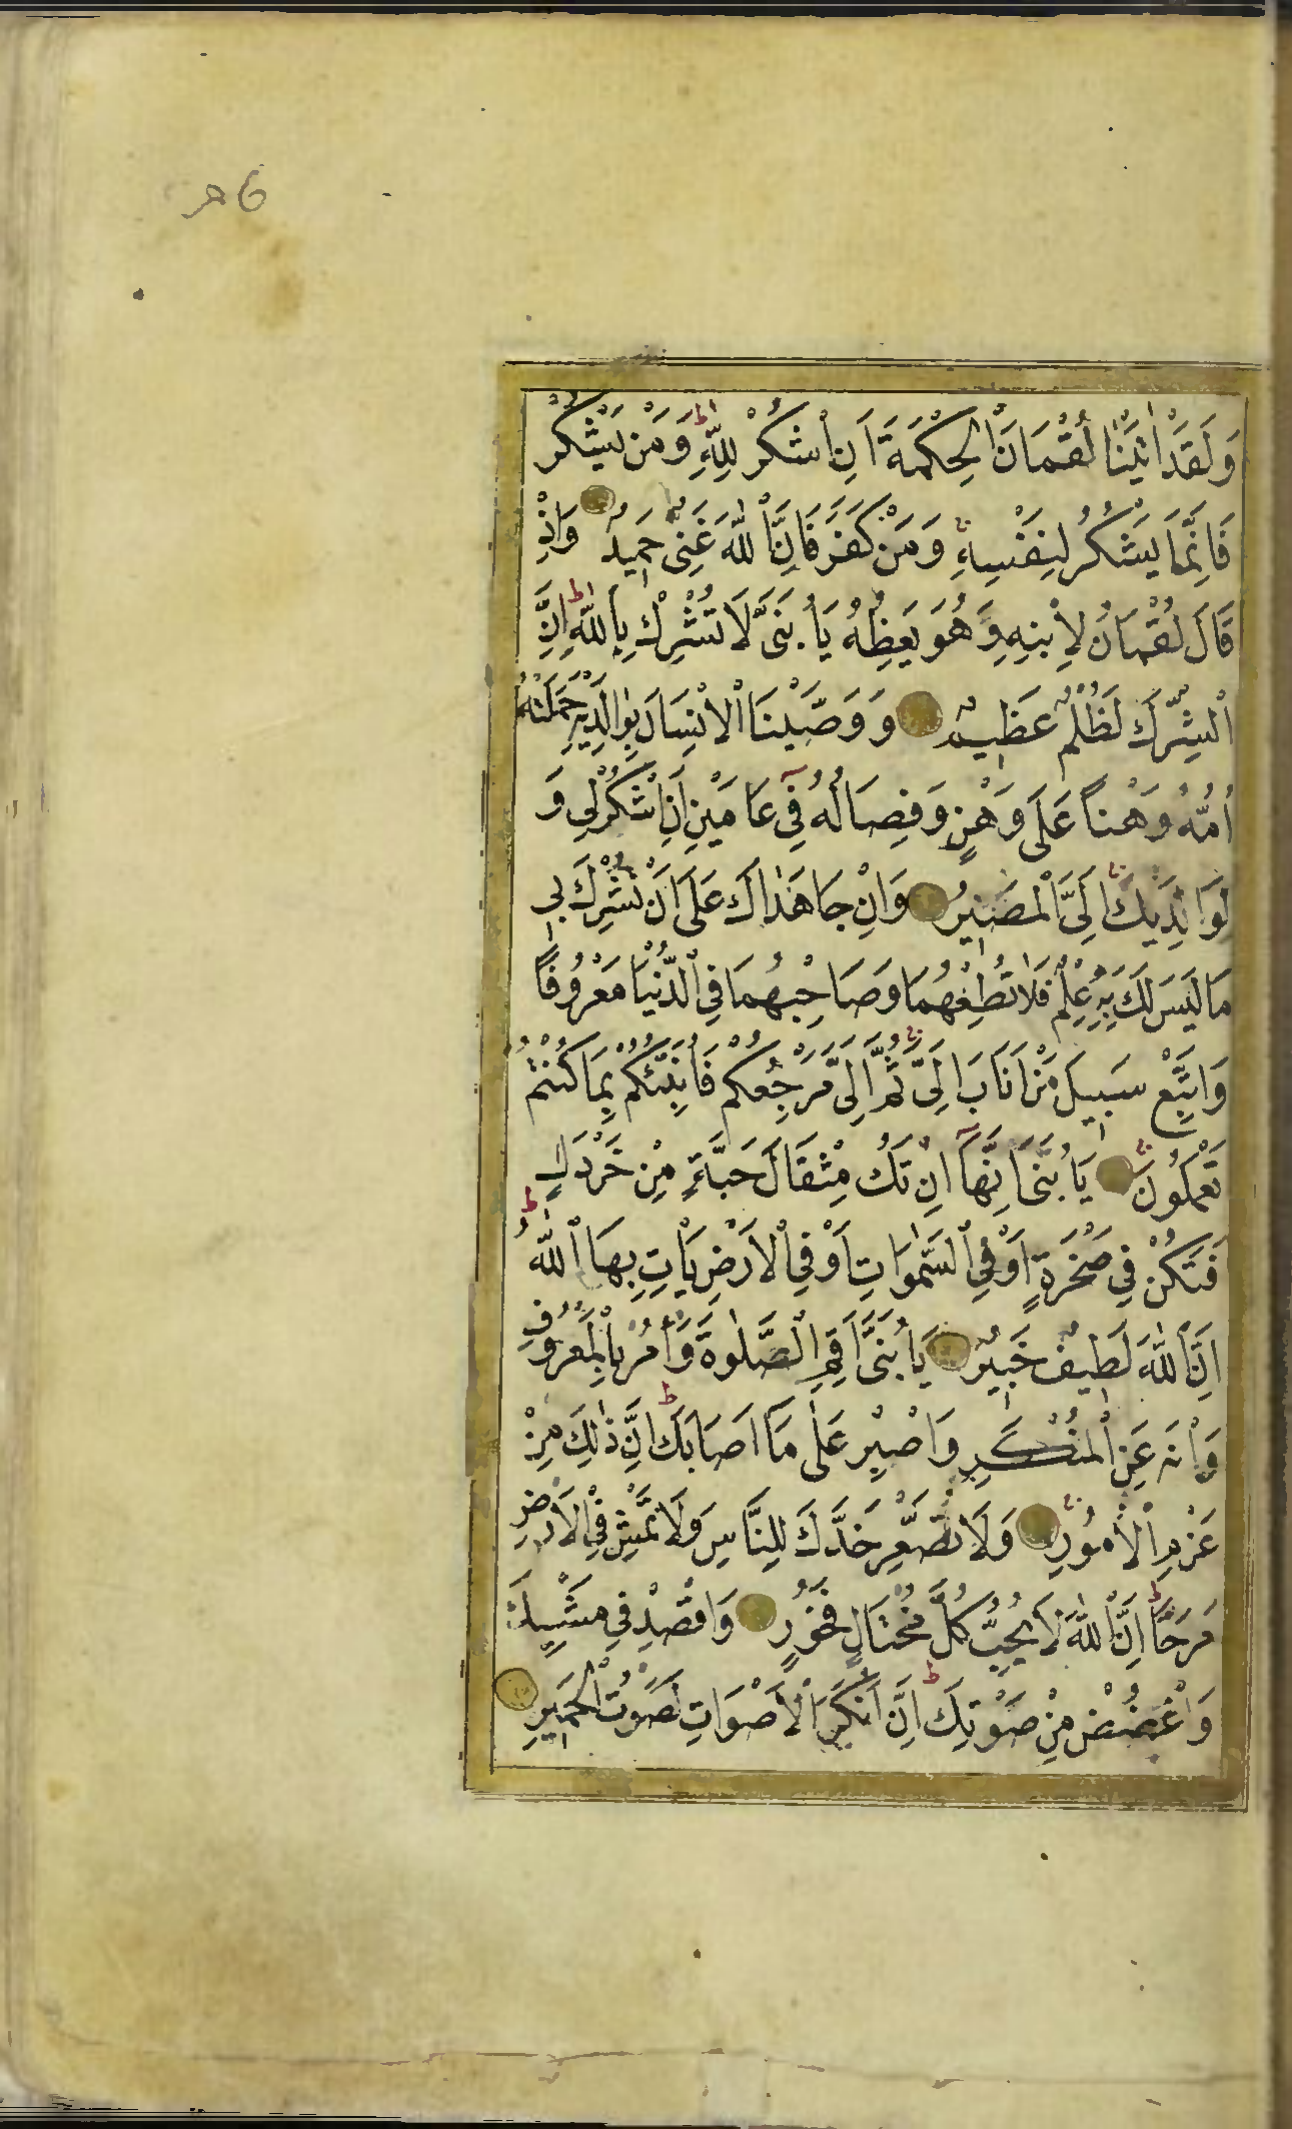 وَلَقَدْ اٰتَيْنَا لُقْمَانَ الْحِكْمَةَ اَنِ اشْكُرْ لِلّٰهِ وَمَنْ يَشْكُرْ
فَاِنَّمَا يَشْكُرُ لِنَفْسِهِ وَمَنْ كَفَرَ فَاِنَّ اللّٰهَ غَنِىٌّ حَمِيدٌ وَاِذْ
قَالَ لُقْمَانُ لِابْنِهِ وَهُوَ يَعِظُهُ يَابُنَىَّ لَا تُشْرِكْ بِاللّٰهِ اِنَّ
الشِّرْكَ لَظُلْمٌ عَظِيمٌ وَوَصَّيْنَا الْاِنْسَانَ بِوَالِدَيْهِ حَمَلَتْهُ
اُمُّهُ وَهْناً عَلَى وَهْنٍ وَفِصَالُهُ فِى عَامَيْنِ اَنِ اشْكُرْ لِى وَ
لِوَالِدَيْكَ اِلَىَّ الْمَصِيرُ وَاِنْ جَاهَدَاكَ عَلَى اَنْ تُشْرِكَ بِى
مَا لَيْسَ لَكَ بِهِ عِلْمٌ فَلَا تُطِعْهُمَا وَصَاحِبْهُمَا فِى الدُّنْيَا مَعْرُوفًا
وَاتَّبِعْ سَبِيلَ مَنْ اَنَابَ اِلَىَّ ثُمَّ اِلَىَّ مَرْجِعُكُمْ فَاُنَبِّئُكُمْ بِمَا كُنْتُمْ
تَعْمَلُونَ يَابُنَىَّ اِنَّهَا اِنْ تَكُ مِثْقَالَ حَبَّةٍ مِنْ خَرْدَلٍ
فَتَكُنْ فِى صَخْرَةٍ اَوْ فِى السَّمٰوَاتِ اَوْ فِى الْاَرْضِ يَاْتِ بِهَا اللّٰهُ
اِنَّ اللّٰهَ لَطِيفٌ خَبِيرٌ يَابُنَىَّ اَقِمِ الصَّلٰوةَ وَاْمُرْ بِالْمَعْرُوفِ
وَانْهَ عَنِ الْمُنْكَرِ وَاصْبِرْ عَلٰى مَا اَصَابَكَ اِنَّ ذٰلِكَ مِنْ
عَزْمِ الْاُمُورِ وَلَا تُصَعِّرْ خَدَّكَ لِلنَّاسِ وَلَا تَمْشِ فِى الْاَرْضِ
مَرَحًا اِنَّ اللّٰهَ لَا يُحِبُّ كُلَّ مُخْتَالٍ فَخُورٍ وَاقْصِدْ فِى مَشْيِكَ
وَاغْضُضْ مِنْ صَوْتِكَ اِنَّ اَنْكَرَ الْاَصْوَاتِ لَصَوْتُ الْحَمِيرِ